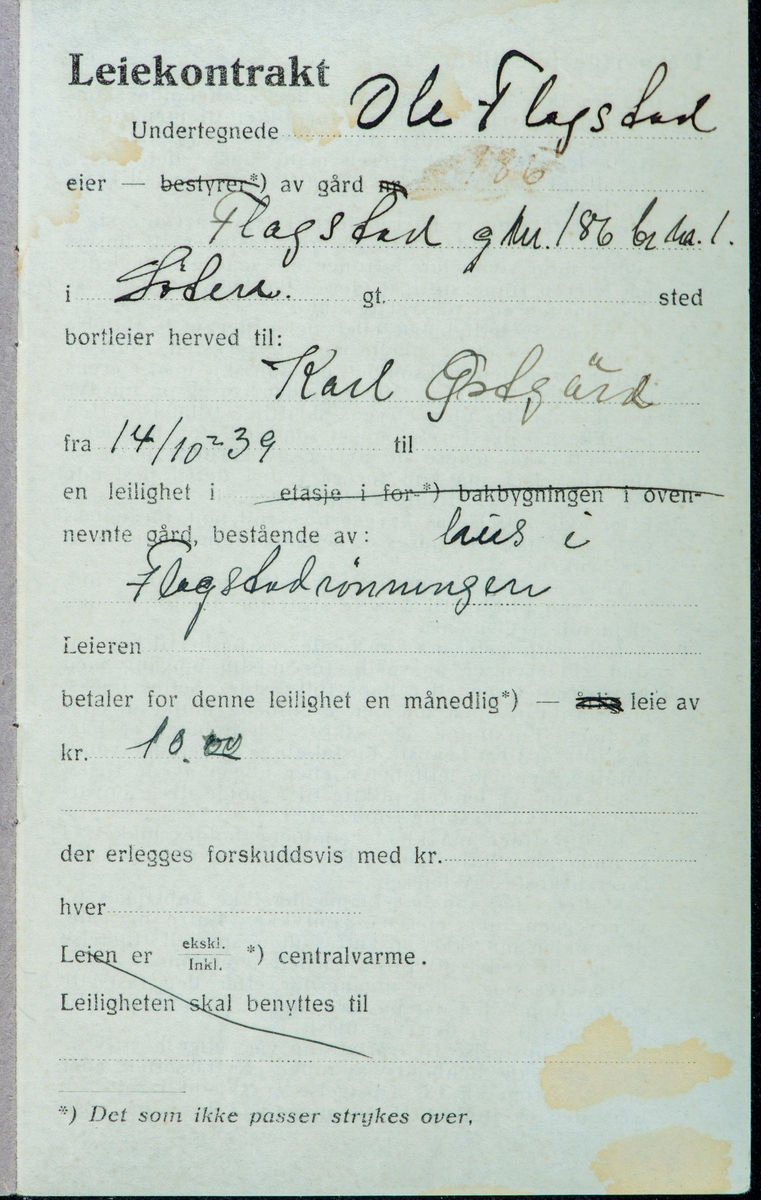 Leiekontrakt
Undertegnede Ole Flagstad
eier — bestyrer*) av gård nr. 186
Flagstad gnr. 186 br nr. 1.
i Löten. gt. sted
bortleier herved til:
Karl Østgård
fra 14/10-39 til
en leilighet i etasje i for-*) bakbygningen i oven-
nevnte gård, bestående av: hus i
Flagstadrönningen
Leieren
betaler for denne leilighet en månedlig*) — årlig leie av
kr. 10.00
der erlegges forskuddsvis med kr.
hver
Leien er ekskl. Inkl. *) centralvarme.
Leiligheten skal benyttes til
*) Det som ikke passer strykes over,